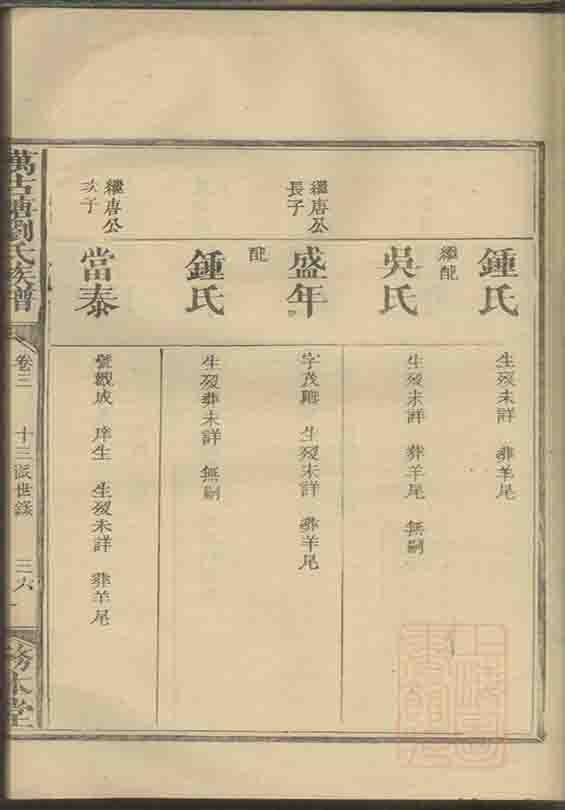 鍾氏
生歿未詳 葬羊尾
繼配
吳氏
生歿未詳 葬羊尾 無嗣
繼唐公
長子
盛年
字茂雕 生歿未詳 葬羊尾
配
鍾氏
生歿葬未詳 無嗣
繼唐公
次子
當泰
號觀成 庠生 生歿未詳 葬羊尾
萬古塘劉氏族譜
卷三 十三派世錄 三六
務本堂
上海圖書館藏